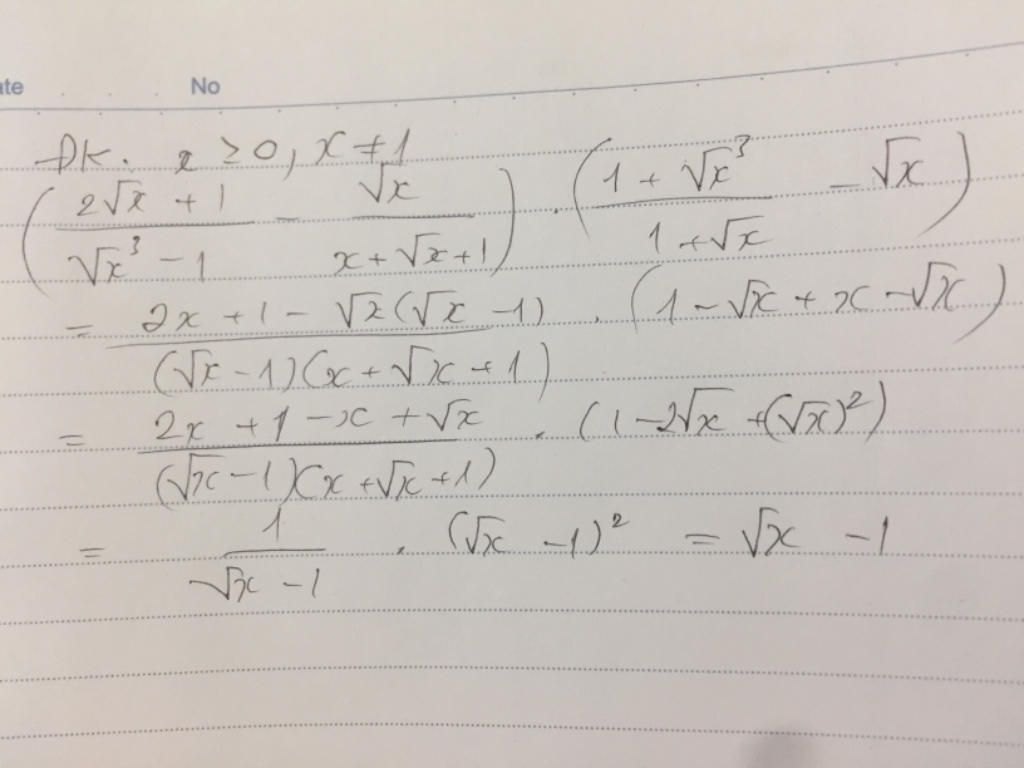 ate No
ĐK. x ≥ 0, x ≠ 1
( (2√x + 1)/(√x³ - 1) - √x/(x + √x + 1) ) . ( (1 + √x³)/(1 + √x) - √x )
= (2x + 1 - √x(√x - 1))/((√x - 1)(x + √x + 1)) . (1 - √x + x - √x)
= (2x + 1 - x + √x)/((√x - 1)(x + √x + 1)) . (1 - 2√x + (√x)²)
= 1/(√x - 1) . (√x - 1)² = √x - 1